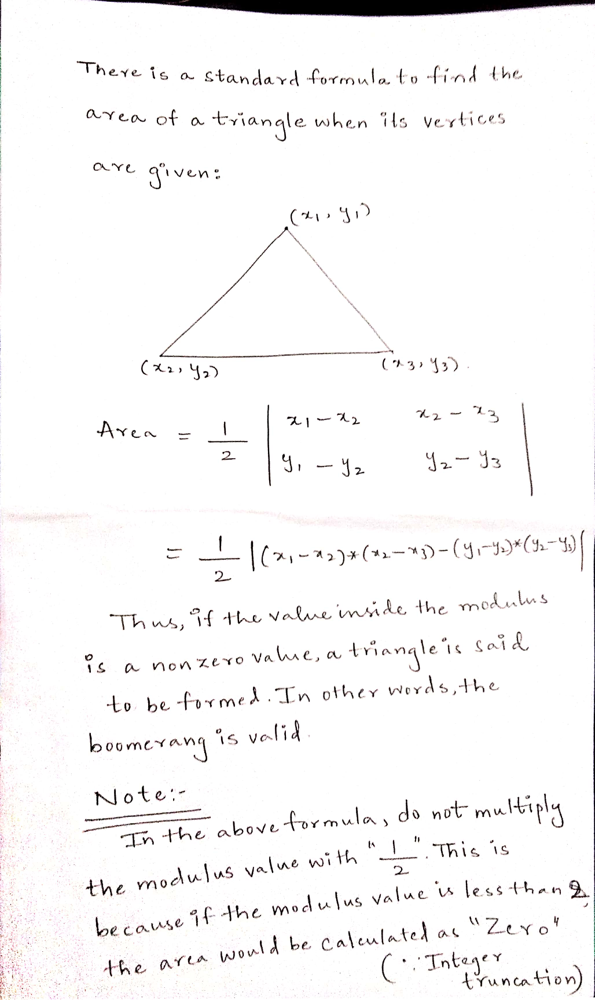 There is a standard formula to find the
area of a triangle when its vertices
are given:
(x1, y1)
(x2, y2) (x3, y3).
Area = 1/2 | x1 - x2 x2 - x3 |
| y1 - y2 y2 - y3 |
= 1/2 |(x1-x2)*(x2-x3)-(y1-y2)*(y2-y3)|
Thus, if the value inside the modulus
is a non zero value, a triangle is said
to be formed. In other words, the
boomerang is valid.
Note:-
In the above formula, do not multiply
the modulus value with "1/2". This is
because if the modulus value is less than 2,
the area would be calculated as "Zero"
(∵ Integer
truncation)